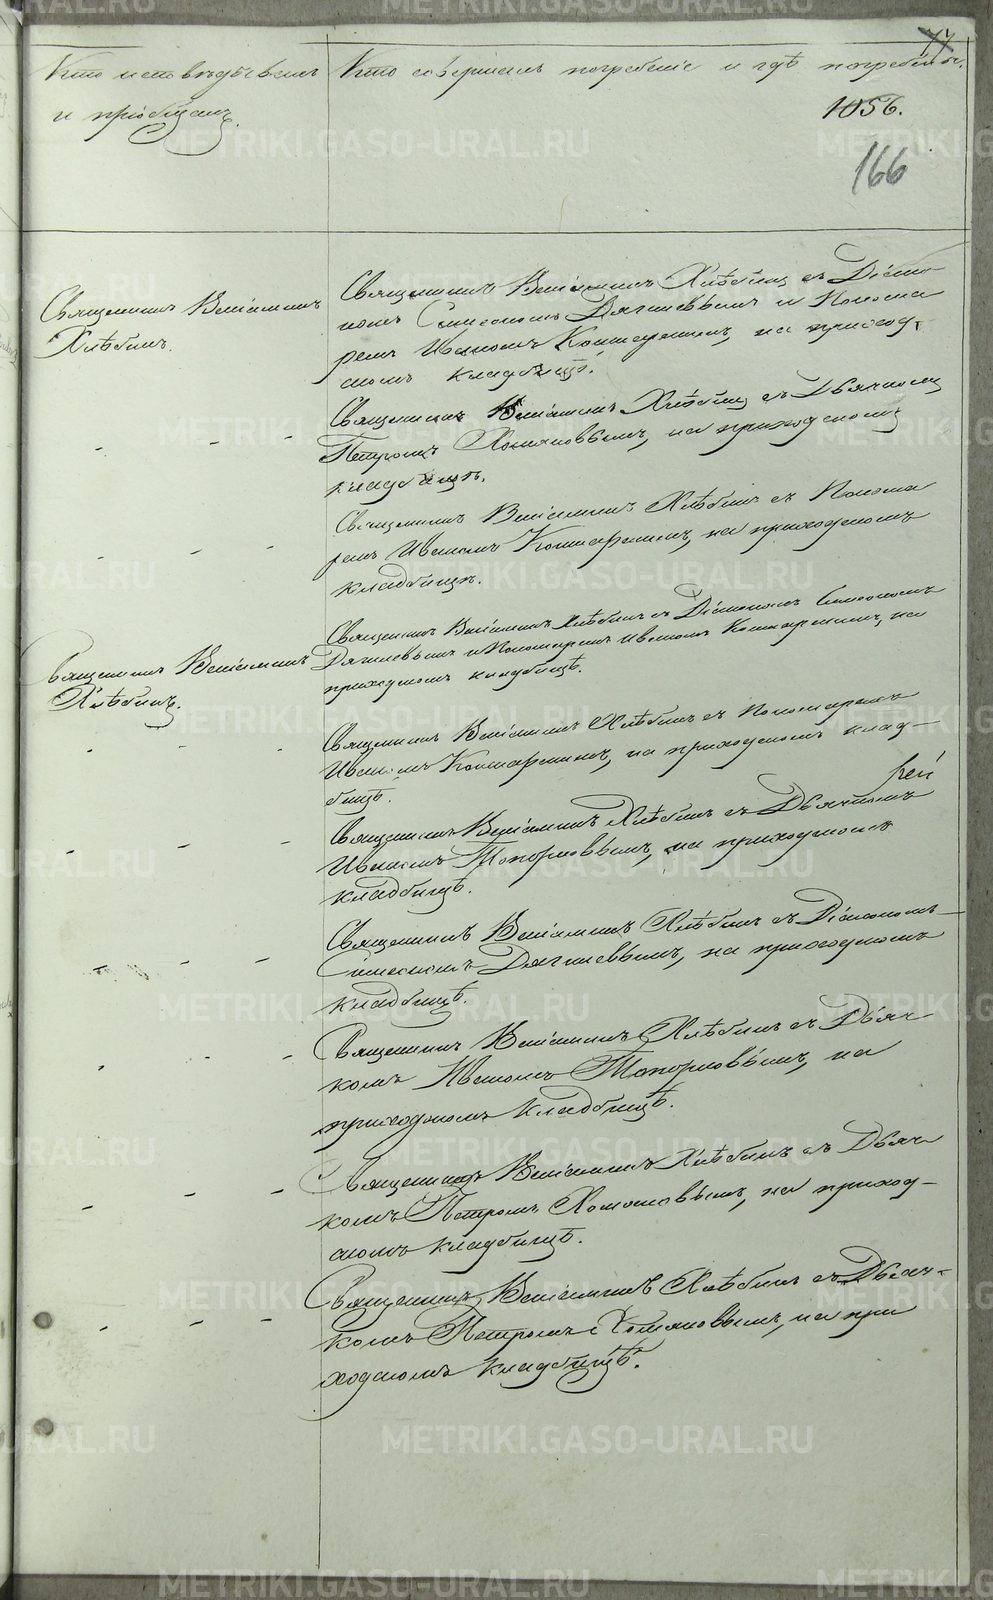 77
Кто исповѣдывалъ
и пріобщалъ.
Кто совершалъ погребеніе и гдѣ погребены.
1056.
166
Священникъ Веніаминъ
Хлѣбинъ.
Священникъ Веніаминъ Хлѣбинъ съ Діако-
номъ Симеономъ Дягилевымъ и Понома
ремъ Иваномъ Кокшарскимъ, на приход-
скомъ кладбищѣ.
Священникъ Веніаминъ Хлѣбинъ съ Дьячкомъ
Петромъ Хомяковымъ, на приходскомъ
кладбищѣ.
Священникъ Веніаминъ Хлѣбинъ съ Понома
ремъ Иваномъ Кокшарскимъ, на приходскомъ
кладбищѣ.
Священникъ Веніаминъ
Хлѣбинъ.
Священникъ Веніаминъ Хлѣбинъ съ Діакономъ Симеономъ
Дягилевымъ и Пономаремъ Иваномъ Кокшарскимъ, на
приходскомъ кладбищѣ.
Священникъ Веніаминъ Хлѣбинъ съ Пономаремъ
Иваномъ Кокшарскимъ, на приходскомъ клад-
бищѣ.
Священникъ Веніаминъ Хлѣбинъ съ Дьячкомъ
Иваномъ Топорковымъ, на приходскомъ
кладбищѣ.
Священникъ Веніаминъ Хлѣбинъ съ Діакономъ
Симеономъ Дягилевымъ, на приходскомъ
кладбищѣ.
Священникъ Веніаминъ Хлѣбинъ съ Дьяч
комъ Иваномъ Топорковымъ, на
приходскомъ кладбищѣ.
Священникъ Веніаминъ Хлѣбинъ съ Дьяч
комъ Петромъ Хомяковымъ, на приход-
скомъ кладбищѣ.
Священникъ Веніаминъ Хлѣбинъ съ Дьяч-
комъ Петромъ Хомяковымъ, на при
ходскомъ кладбищѣ.
METRIKI.GASO-URAL.RU